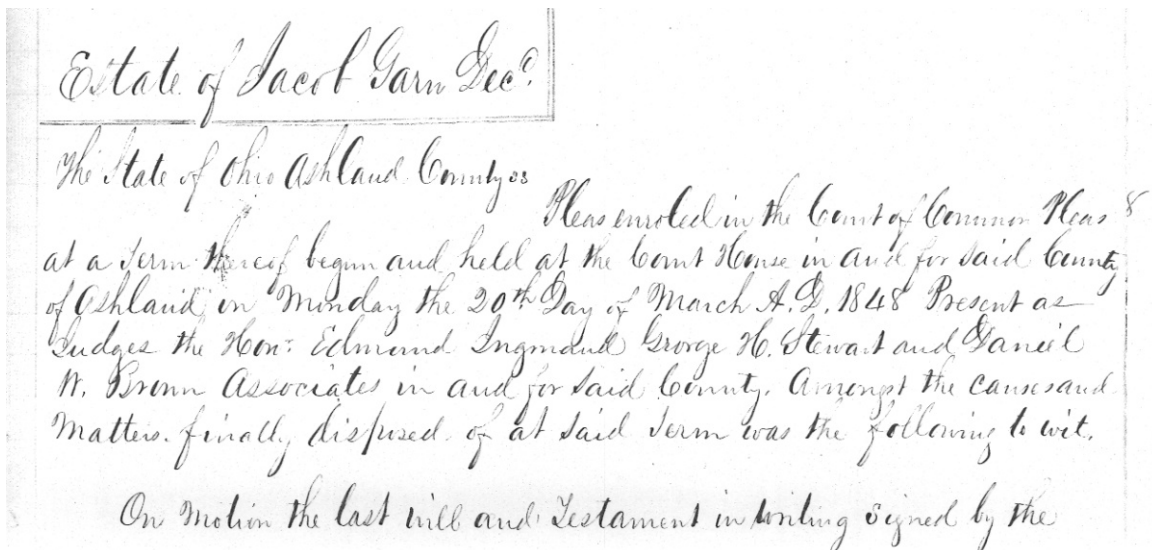 Estate of Jacob Garn Decd.
The State of Ohio Ashland County ss
Pleas enroled in the Court of Common Pleas 8
at a Term thereof begun and held at the Court House in and for said County
of Ashland in Monday the 20th Day of March A. D. 1848 Present as
Judges the Hon: Edmund Ingmand George H. Stewart and Daniel
W. Brown Associates in and for said County. Amongst the causes and
Matters. finally disposed of at said Term was the following to wit.
On Motion the last will and Testament in writing signed by the